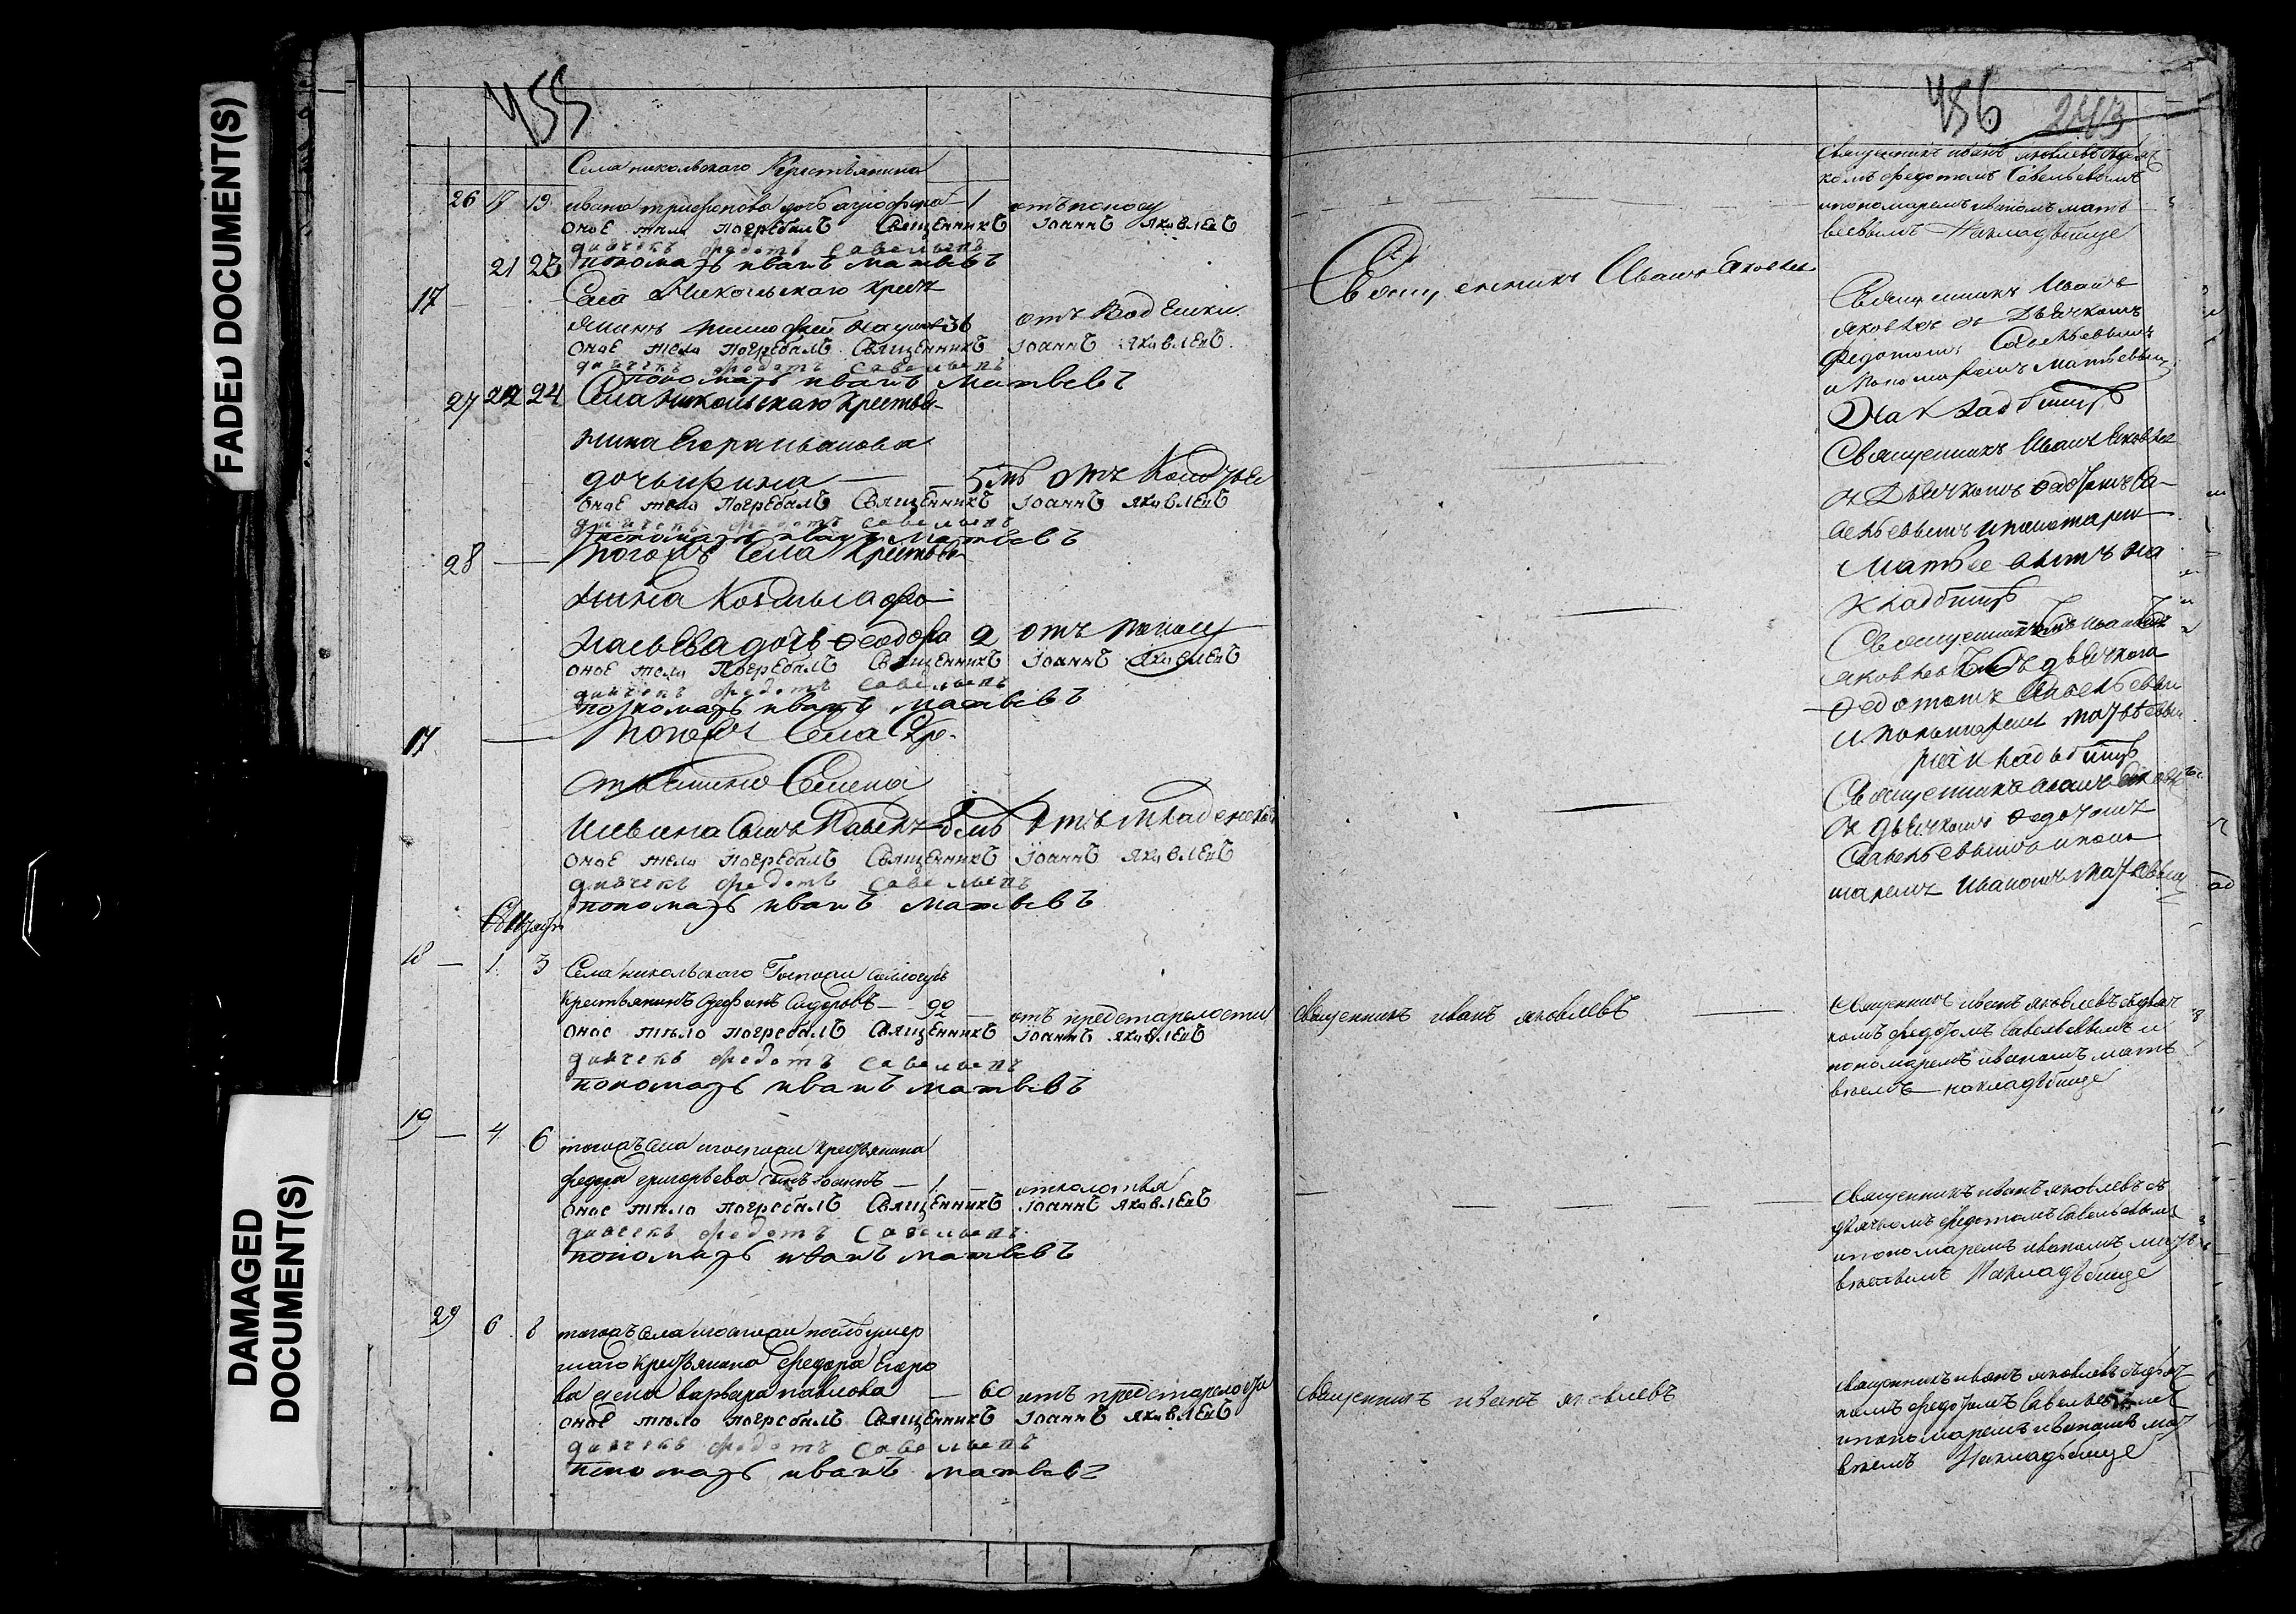 FADED DOCUMENT(S)
DAMAGED DOCUMENT(S)
455
Села никольского Крестьянина
26 17 19 ивана трифонова дочь 1 отъ поносу
оное тело погребалъ Священникъ Іоаннъ Яковлевъ
дьячекъ федотъ савельевъ
пономарь иванъ матвевъ
17 21 23 Села Никольскаго крест
янинъ тимофей наумовъ 36 отъ Водянки
оное тело погребалъ Священникъ Іоаннъ Яковлевъ
дьячекъ федотъ савельевъ
пономарь иванъ матвевъ
27 22 24 Села Никольскаго крестья-
нина Егора Иванова
дочь ирина 5 отъ
оное тело погребалъ Священникъ Іоаннъ Яковлевъ
дьячекъ федотъ савельевъ
пономарь иванъ матвевъ
28 тогожъ Села крестья
нина Козмы афо
насьева дочь Феодора 2 отъ поносу
оное тело погребалъ Священникъ Іоаннъ Яковлевъ
дьячекъ федотъ савельевъ
пономарь иванъ матвевъ
17 тогожъ Села Кре-
стьянина Семена
сынъ Павелъ отъ младенской
оное тело погребалъ Священникъ Іоаннъ Яковлевъ
дьячекъ федотъ савельевъ
пономарь иванъ матвевъ
18 1 3 Села никольского Госпожи
крестьянинъ Сидоровъ 92 отъ престарелости
оное тело погребалъ Священникъ Іоаннъ Яковлевъ
дьячекъ федотъ савельевъ
пономарь иванъ матвевъ
19 4 6 тогожъ села крестьянина
федора григорьева сынъ 1
оное тело погребалъ Священникъ Іоаннъ Яковлевъ
дьячекъ федотъ савельевъ
пономарь иванъ матвевъ
29 6 8 тогожъ села умер
шаго крестьянина федора Егоро
ва жена варвара павлова 60 отъ престарелости
оное тело погребалъ Священникъ Іоаннъ Яковлевъ
дьячекъ федотъ савельевъ
пономарь иванъ матвевъ
456 243
Священникъ Иванъ Яковлев
священникъ иванъ яковлевъ
священникъ иванъ яковлевъ
священникъ иванъ яковлевъ съ дьяч
комъ федотомъ Савельевымъ
и пономаремъ иваномъ мать
веевымъ На кладбище
Священникъ Иванъ
Яковлев съ Дьячкомъ
Федотомъ Савельевымъ
и пономаремъ матьевым
На кладбище
Священникъ Иванъ Яковлев
с Дьячкомъ Федотомъ Са-
вельевымъ и пономарем
Матвеевымъ на
кладбище
Священникъ Иванъ
Яковлевъ съ дьячкомъ
Федотомъ Савельевым
и пономаремъ матьвевым
на кладбище
Священникъ Иванъ Яковлев
с дьячкомъ Федотомъ
Савельевымъ и поно
маремъ Иваномъ Матьвевым
священникъ иванъ яковлевъ съ дьяч
комъ федотомъ савельевымъ и
пономаремъ иваномъ матв
веемъ на кладбище
священникъ иванъ яковлевъ съ
дьячкомъ федотомъ савельевымъ
и пономаремъ иваномъ матв
веевымъ На кладбище
священникъ иванъ яковлевъ съ дьяч
комъ федотомъ савельевымъ
и пономаремъ иваномъ мат
веемъ На кладбище